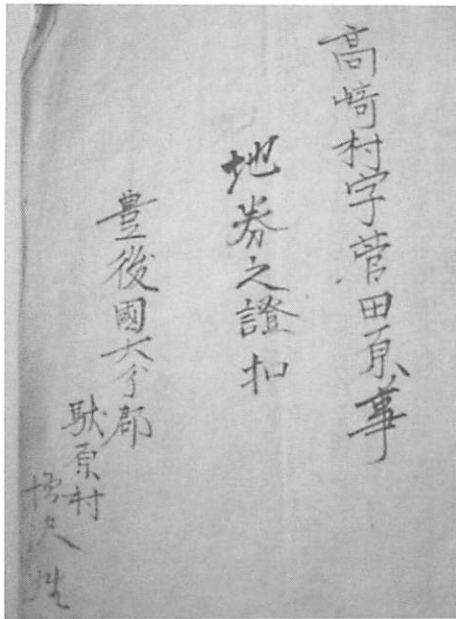 高﨑村字菅田原事
地券之證扣
豊後國大分郡
駄原村